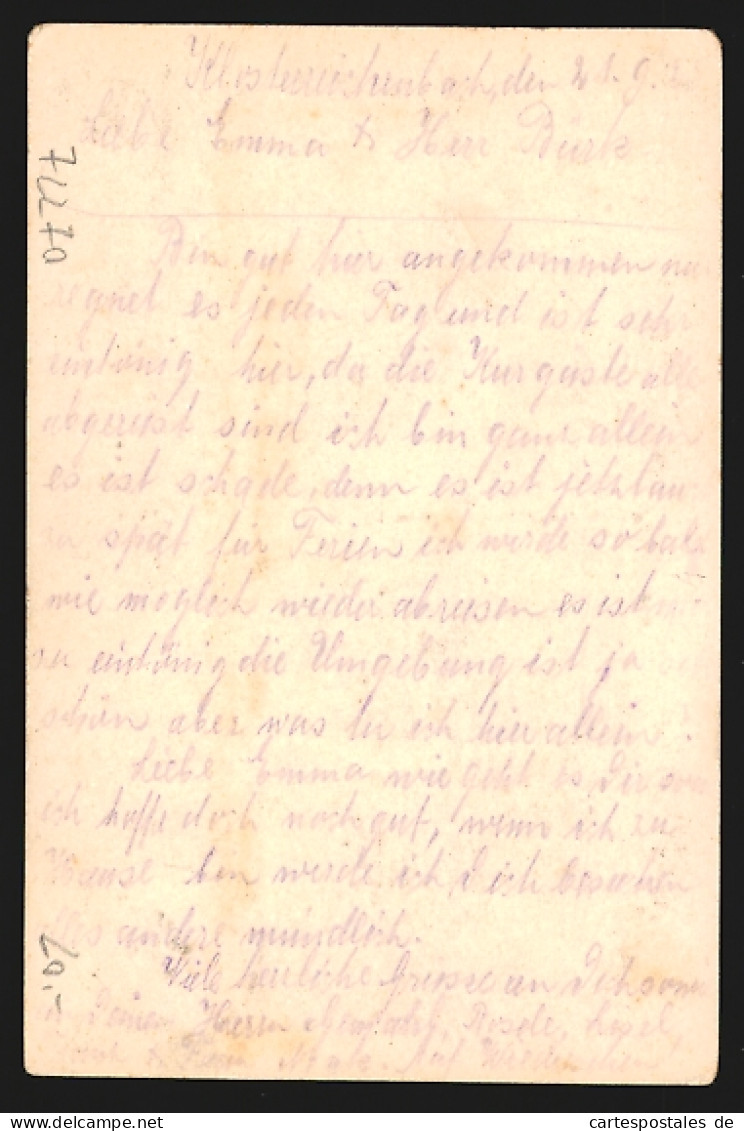 Klosterreichenbach, den 21.9.
Liebe Emma & Herr Bürk
Bin gut hier angekommen nur
regnet es jeden Tag und ist sehr
eintönig hier, da die Kurgäste alle
abgereist sind ich bin ganz allein
es ist schade, denn es ist jetzt
zu spät für Ferien ich werde so bald
wie möglich wieder abreisen es ist
zu eintönig die Umgebung ist ja
schön aber was tu ich hier allein?
Liebe Emma wie geht es Dir
ich hoffe doch noch gut, wenn ich zu
Hause bin werde ich Dich besuchen
Alles andere mündlich.
Viele herzliche Grüsse an Dich sowie
Deinen Herrn Gemahl,
Auf Wiedersehen
7UZ70
20.-
cartespostales de